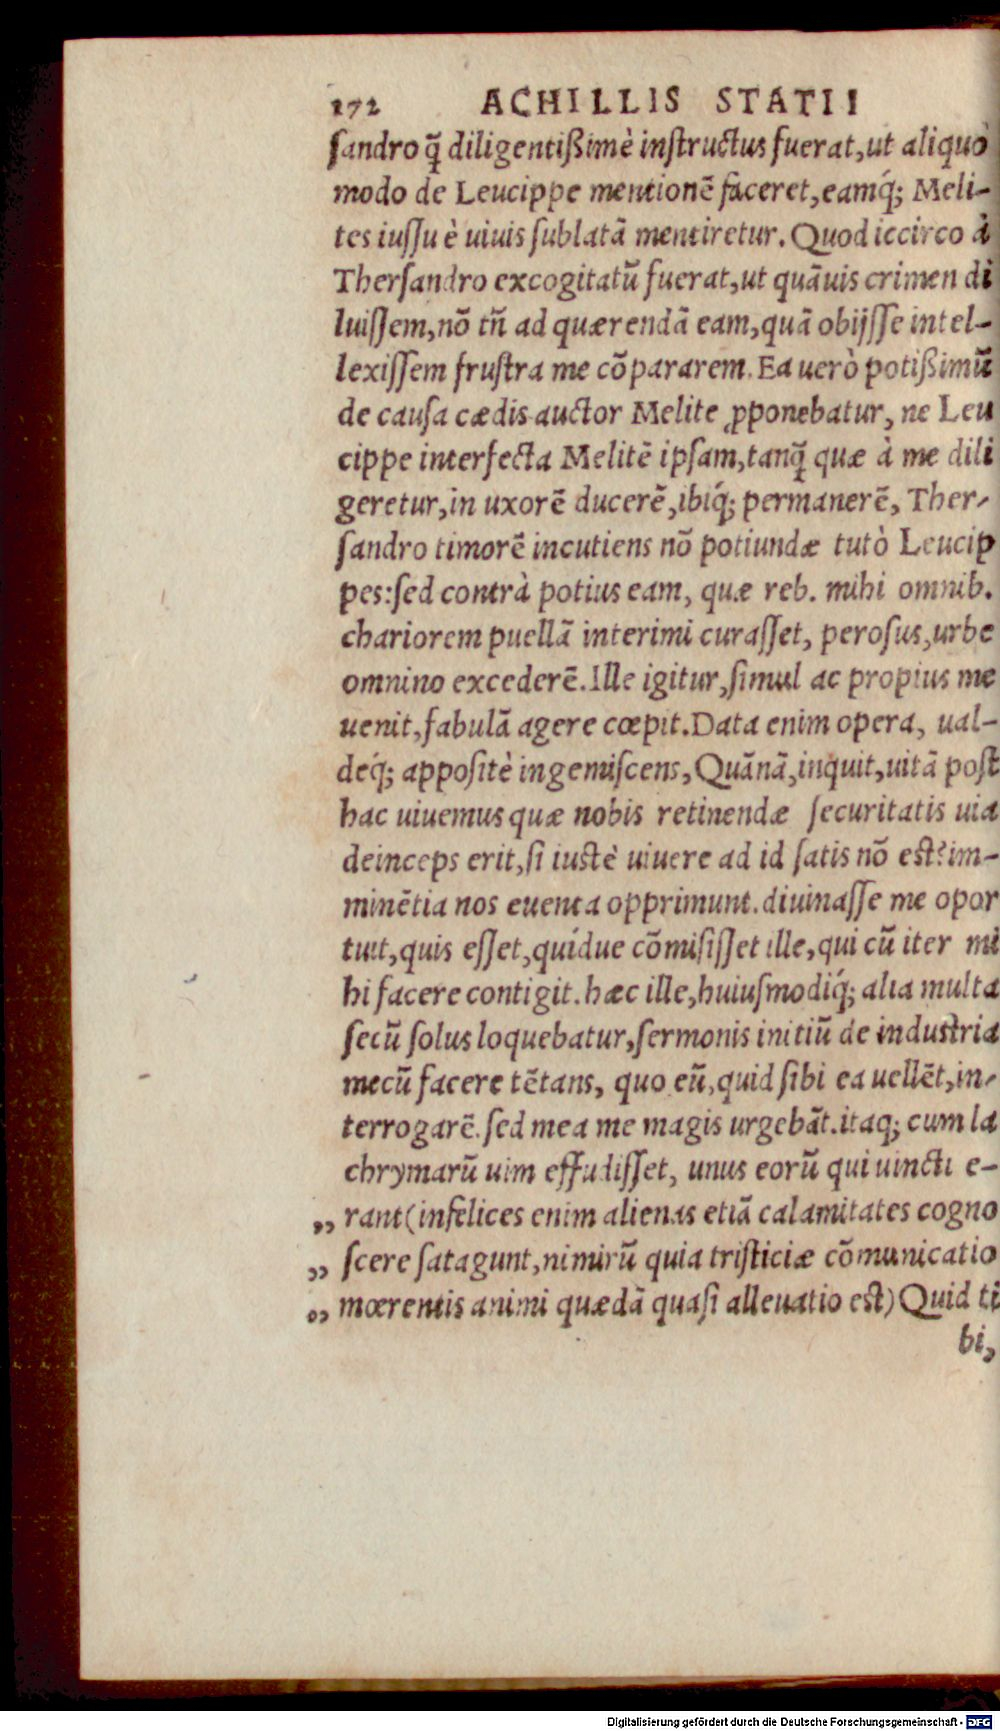 172 ACHILLIS STATII
ſandro q̃ diligentißimè inſtructus fuerat, ut aliquo
modo de Leucippe mentionẽ faceret, eamq́; Meli-
tes iuſſu è uiuis ſublatã mentiretur. Quod iccirco à
Therſandro excogitatũ fuerat, ut quãuis crimen di
luiſſem, nõ tñ ad quærendã eam, quã obijſſe intel-
lexiſſem fruſtra me cõpararem. Ea uerò potißimũ
de cauſa cædis auctor Melite ꝓponebatur, ne Leu
cippe interfecta Melitẽ ipſam, tanq̃ quæ à me dili
geretur, in uxorẽ ducerẽ, ibiq́; permanerẽ, Ther-
ſandro timorẽ incutiens nõ potiundæ tutò Leucip
pes: ſed contrà potius eam, quæ reb. mihi omnib.
chariorem puellã interimi curaſſet, peroſus, urbe
omnino excederẽ. Ille igitur, ſimul ac propius me
uenit, fabulã agere cœpit. Data enim opera, ual-
deq́; appoſitè ingemiſcens, Quãnã, inquit, uitã poſt
hac uiuemus quæ nobis retinendæ ſecuritatis uia
deinceps erit, ſi iustè uiuere ad id ſatis nõ est? im-
minẽtia nos euenta opprimunt. diuinaſſe me opor
tuit, quis eſſet, quídue cõmiſiſſet ille, qui cũ iter mi
hi facere contigit. hæc ille, huiuſmodiq́; alia multa
ſecũ ſolus loquebatur, ſermonis initiũ de industria
mecũ facere tẽtans, quo eũ, quid ſibi ea uellẽt, in-
terrogarẽ. ſed mea me magis urgebãt. itaq; cum la
chrymarũ uim effudiſſet, unus eorũ qui uincti e-
„ rant (infelices enim alienas etiã calamitates cogno
„ ſcere ſatagunt, nimirũ quia triſticiæ cõmunicatio
„ mœrentis animi quædã quaſi alleuatio est) Quid ti
bi,
Digitalisierung gefördert durch die Deutsche Forschungsgemeinschaft - DFG